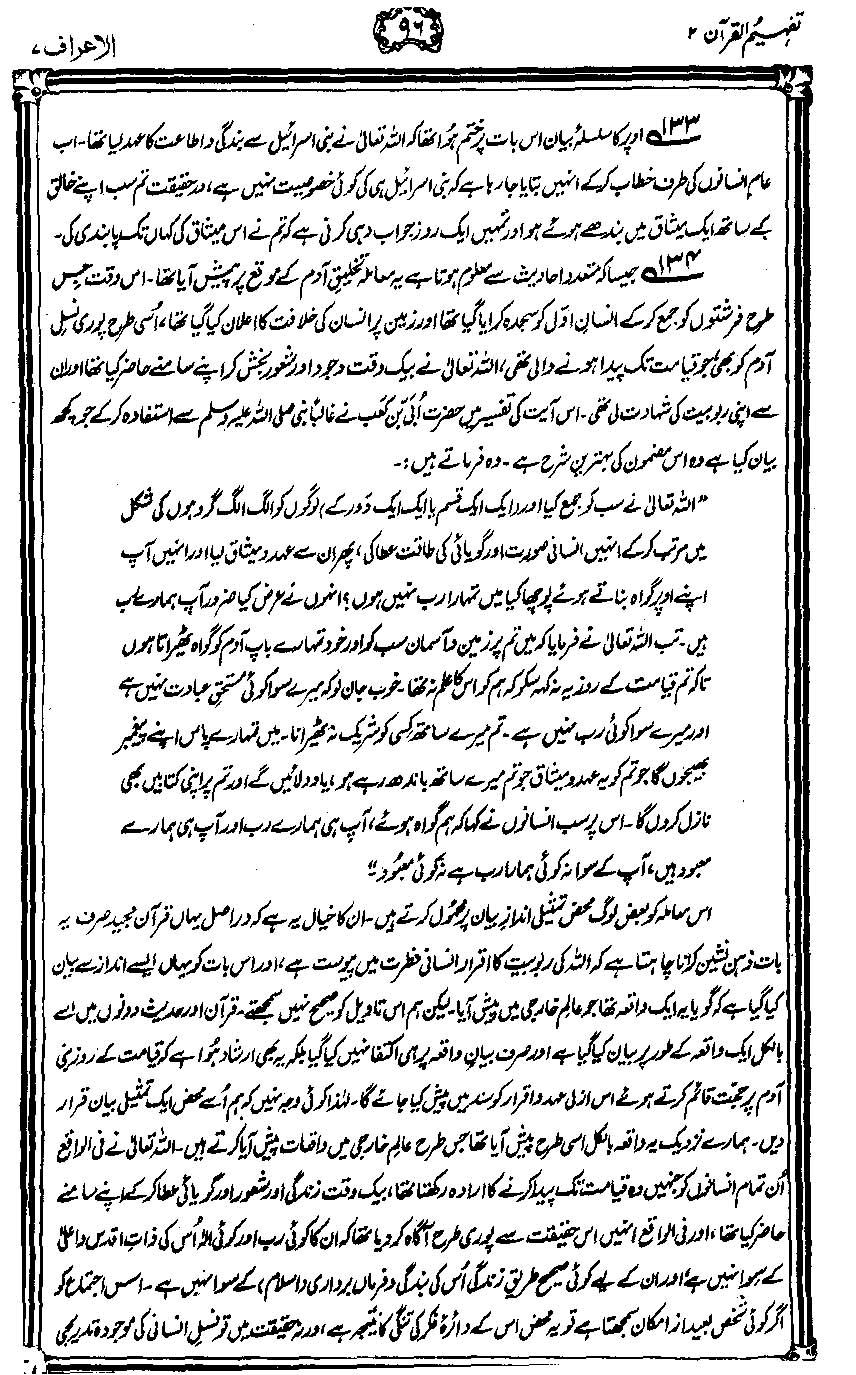 تفہیم القرآن ۲
۹۶
الاعراف ۷
۱۳۳ اوپر کا سلسلۂ بیان اس بات پر ختم ہوا تھا کہ اللہ تعالیٰ نے بنی اسرائیل سے بندگی و اطاعت کا عہد لیا تھا۔ اب
عام انسانوں کی طرف خطاب کر کے انہیں بتایا جا رہا ہے کہ بنی اسرائیل ہی کی کوئی خصوصیت نہیں ہے، درحقیقت تم سب اپنے خالق
کے ساتھ ایک میثاق میں بندھے ہوئے ہو اور تمہیں ایک روز جواب دہی کرنی ہے کہ تم نے اس میثاق کی کہاں تک پابندی کی۔
۱۳۴ جیسا کہ متعدد احادیث سے معلوم ہوتا ہے یہ معاملہ تخلیقِ آدم کے موقع پر پیش آیا تھا۔ اس وقت جس
طرح فرشتوں کو جمع کر کے انسانِ اوّل کو سجدہ کرایا گیا تھا اور زمین پر انسان کی خلافت کا اعلان کیا گیا تھا، اُسی طرح پوری نسلِ
آدم کو بھی، جو قیامت تک پیدا ہونے والی تھی، اللہ تعالیٰ نے بیک وقت وجود اور شعور بخش کر اپنے سامنے حاضر کیا تھا اور ان
سے اپنی ربوبیت کی شہادت لی تھی۔ اس آیت کی تفسیر میں حضرت اُبَیّ بن کعب نے غالباً نبی صلی اللہ علیہ وسلم سے استفادہ کر کے جو کچھ
بیان کیا ہے وہ اس مضمون کی بہترین شرح ہے۔ وہ فرماتے ہیں:۔
”اللہ تعالیٰ نے سب کو جمع کیا اور (ایک ایک قسم یا ایک ایک دَور کے) لوگوں کو الگ الگ گروہوں کی شکل
میں مرتب کر کے انہیں انسانی صورت اور گویائی کی طاقت عطا کی، پھر ان سے عہد و میثاق لیا اور انہیں آپ
اپنے اوپر گواہ بناتے ہوئے پوچھا کیا میں تمہارا رب نہیں ہوں؟ انہوں نے عرض کیا ضرور آپ ہمارے رب
ہیں۔ تب اللہ تعالیٰ نے فرمایا کہ میں تم پر زمین و آسمان سب کو اور خود تمہارے باپ آدم کو گواہ ٹھیراتا ہوں
تاکہ تم قیامت کے روز یہ نہ کہہ سکو کہ ہم کو اس کا علم نہ تھا۔ خوب جان لو کہ میرے سوا کوئی مستحقِ عبادت نہیں ہے
اور میرے سوا کوئی رب نہیں ہے۔ تم میرے ساتھ کسی کو شریک نہ ٹھیرانا۔ میں تمہارے پاس اپنے پیغمبر
بھیجوں گا جو تم کو یہ عہد و میثاق جو تم میرے ساتھ باندھ رہے ہو، یاد دلائیں گے اور تم پر اپنی کتابیں بھی
نازل کروں گا۔ اس پر سب انسانوں نے کہا کہ ہم گواہ ہوئے، آپ ہی ہمارے رب اور آپ ہی ہمارے
معبود ہیں، آپ کے سوا نہ کوئی ہمارا رب ہے نہ کوئی معبود“
اس معاملہ کو بعض لوگ محض تمثیلی اندازِ بیان پر محمول کرتے ہیں۔ ان کا خیال یہ ہے کہ دراصل یہاں قرآن مجید صرف یہ
بات ذہن نشین کرانا چاہتا ہے کہ اللہ کی ربوبیت کا اقرار انسانی فطرت میں پیوست ہے، اور اس بات کو یہاں ایسے انداز سے بیان
کیا گیا ہے کہ گویا یہ ایک واقعہ تھا جو عالمِ خارجی میں پیش آیا۔ لیکن ہم اس تاویل کو صحیح نہیں سمجھتے۔ قرآن اور حدیث دونوں میں اسے
بالکل ایک واقعہ کے طور پر بیان کیا گیا ہے اور صرف بیانِ واقعہ پر ہی اکتفا نہیں کیا گیا بلکہ یہ بھی ارشاد ہوا ہے کہ قیامت کے روز بنی
آدم پر حجت قائم کرتے ہوئے اس ازلی عہد و اقرار کو سند میں پیش کیا جائے گا۔ لہٰذا کوئی وجہ نہیں کہ ہم اُسے محض ایک تمثیلی بیان قرار
دیں۔ ہمارے نزدیک یہ واقعہ بالکل اسی طرح پیش آیا تھا جس طرح عالمِ خارجی میں واقعات پیش آیا کرتے ہیں۔ اللہ تعالیٰ نے فی الواقع
اُن تمام انسانوں کو جنہیں وہ قیامت تک پیدا کرنے کا ارادہ رکھتا تھا، بیک وقت زندگی اور شعور اور گویائی عطا کر کے اپنے سامنے
حاضر کیا تھا، اور فی الواقع انہیں اس حقیقت سے پوری طرح آگاہ کر دیا تھا کہ ان کا کوئی رب اور کوئی الٰہ اُس کی ذاتِ اقدس و اعلیٰ
کے سوا نہیں ہے، اور ان کے لیے کوئی صحیح طریقِ زندگی اُس کی بندگی و فرماں برداری (اسلام) کے سوا نہیں ہے۔ اس اجتماع کو
اگر کوئی شخص بعید از امکان سمجھتا ہے تو یہ محض اس کے دائرۂ فکر کی تنگی کا نتیجہ ہے، ورنہ حقیقت میں تو نسلِ انسانی کی موجودہ تدریجی